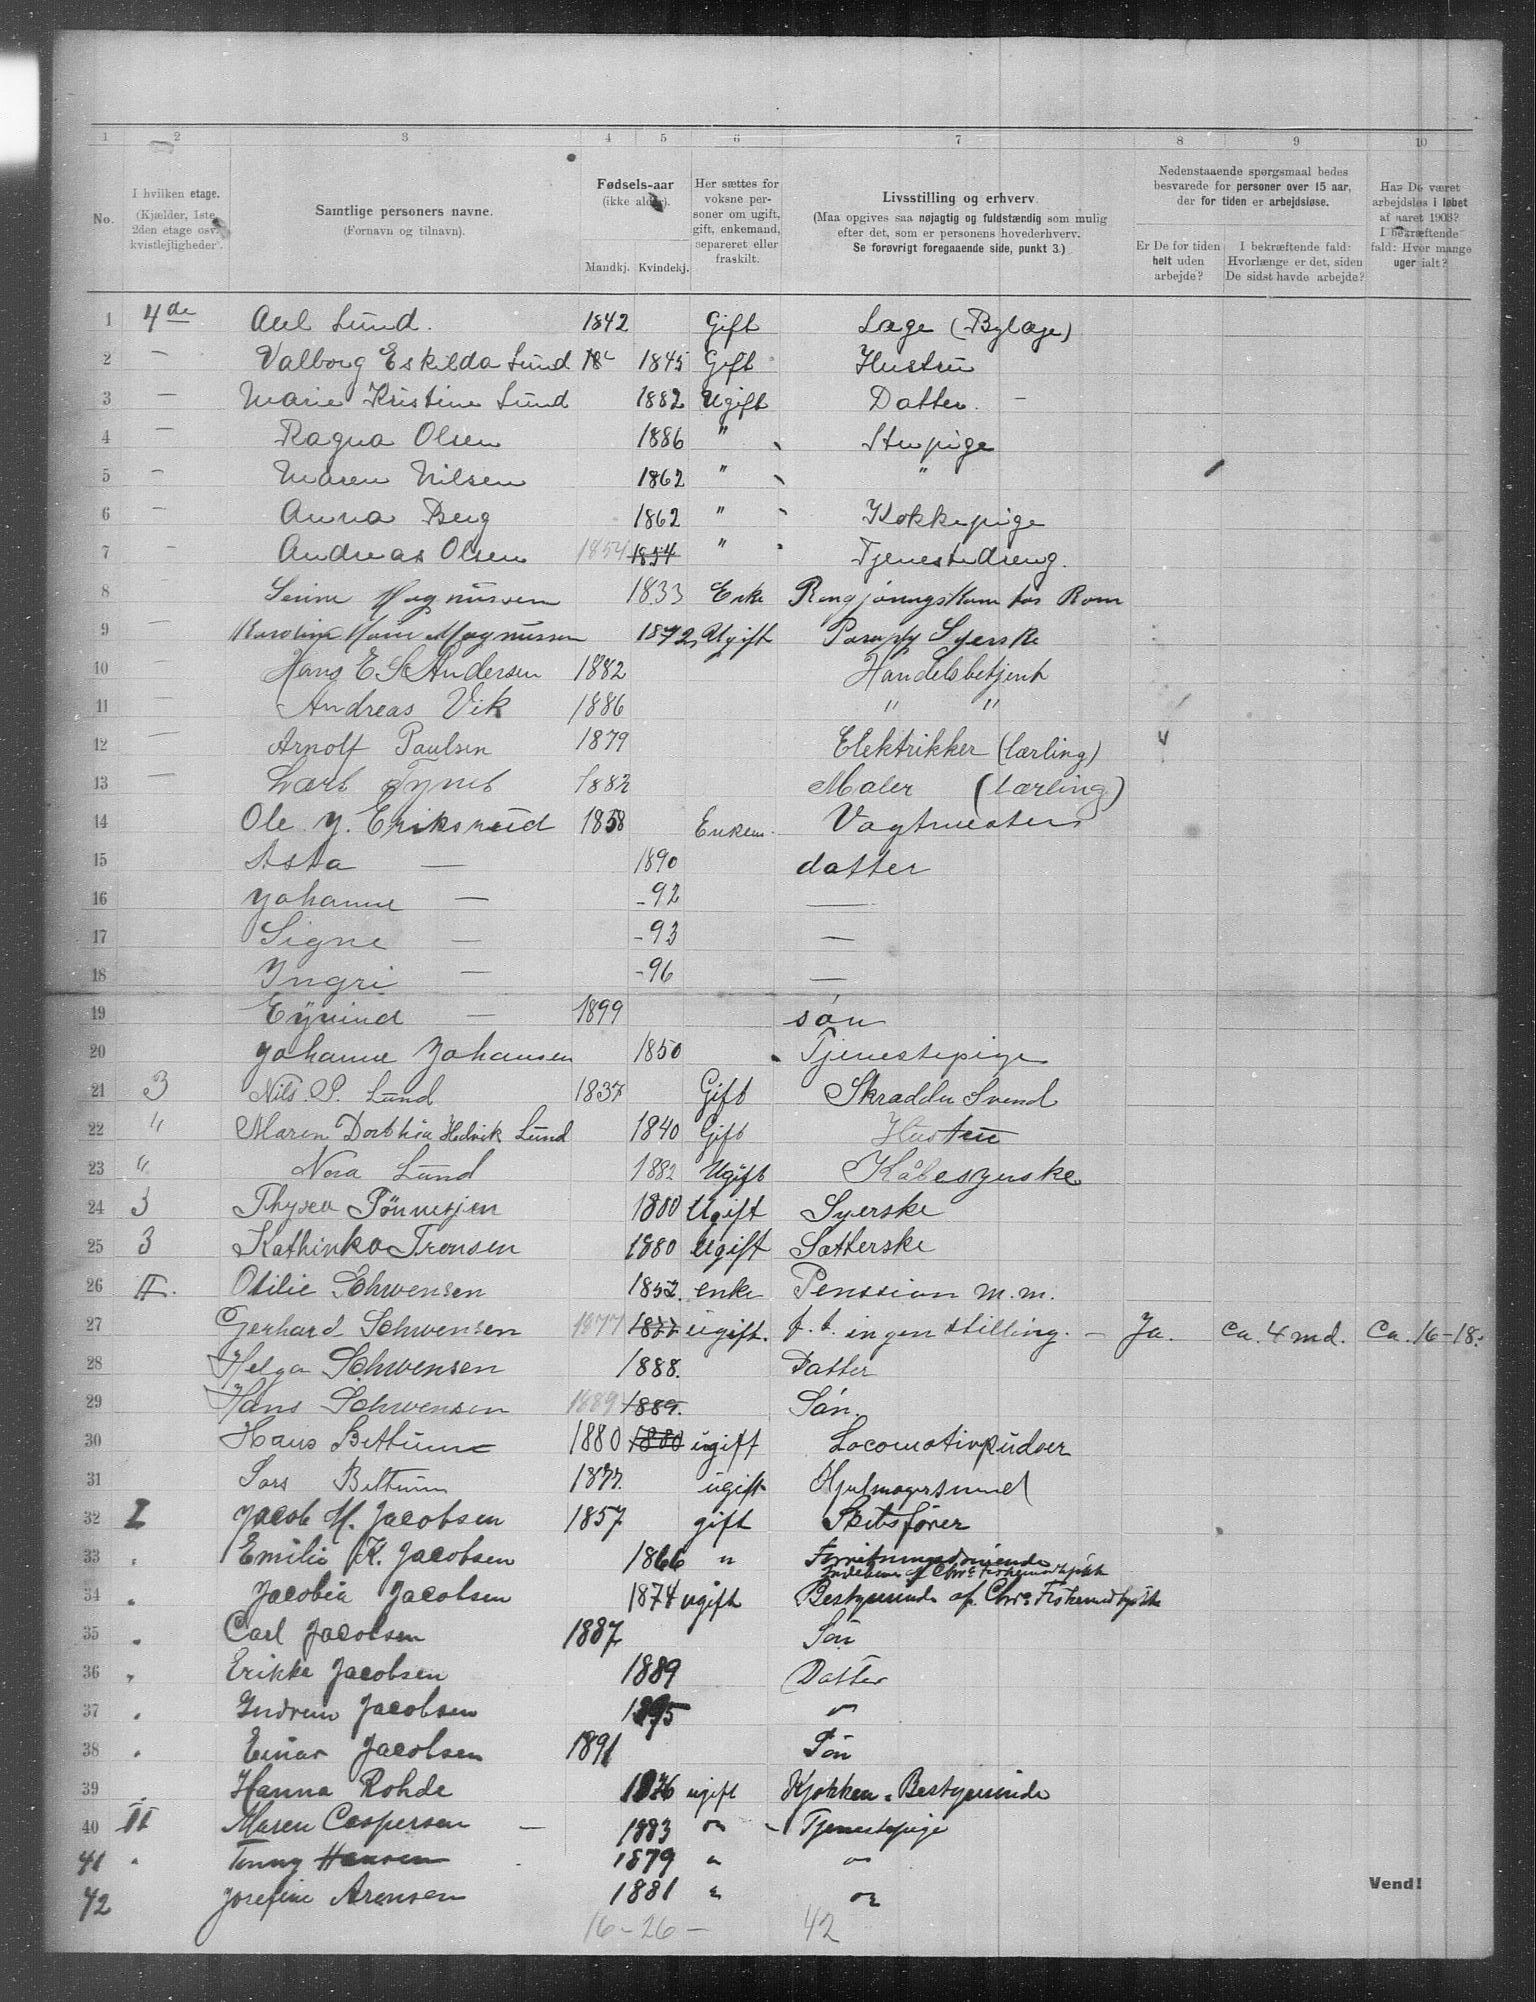 1 2 3 4 5 6 7 8 9 10
No.
I hvilken etage.
(Kjælder, 1ste,
2den etage osv.
kvistleiligheder).
Samtlige personers navne.
(Fornavn og tilnavn).
Fødsels-aar
(ikke alder).
Mandkj. Kvindekj.
Her sættes for
voksne per-
soner om ugift,
gift, enkemand,
separeret eller
fraskilt.
Livsstilling og erhverv.
(Maa opgives saa nøjagtig og fuldstændig som mulig
efter det, som er personens hovederhverv.
Se forøvrigt foregaaende side, punkt 3.)
Nedenstaaende spørgsmaal bedes
besvarede for personer over 15 aar,
der for tiden er arbejdsløse.
Er De for tiden
helt uden
arbejde?
I bekræftende fald:
Hvorlænge er det, siden
De sidst havde arbejde?
Har De været
arbejdsløs i løbet
af aaret 1903?
I bekræftende
fald: Hvor mange
uger ialt?
1 4de Axel Lund. 1842 Gift Læge (Bylæge)
2 – Valborg Eskilda Lund 1845 Gift Hustru
3 – Marie Kristine Lund 1882 Ugift Datter. –
4 – Ragna Olsen 1886 " Stuepige
5 – Maren Nilsen 1862 " "
6 – Anna Berg 1862 " Kokkepige
7 – Andreas Olsen 1854 1854 " Tjenestedreng.
8 Magnussen 1833 Enke Rengjøringskone for Rom
9 – Karoline Marie Magnussen 1872 Ugift Syerske
10 – Hans E S Andersen 1882 Handelsbetjent
11 – Andreas Vik 1886 " "
12 – Arnolf Paulsen 1879 Elektrikker (lærling)
13 – 1882 Maler (lærling)
14 Ole M. Eriksrud 1858 Enkem. Vagtmester
15 Asta — 1890 datter
16 Johanne — -92 —
17 Signe — -93 —
18 Ingri — -96 —
19 Eyvind — 1899 søn
20 Johanne Johansen 1850 Tjenestepige
21 3 Nils. P. Lund 1837 Gift Skrædder Svend
22 " Maren Dorthea Hedvik Lund 1840 Gift Hustru
23 " Nora Lund 1882 Ugift Kåbesyerske
24 3 Thyra Tønnesjen 1880 Ugift Syerske
25 3 Kathinka Tronsen 1880 Ugift Sætterske
26 II. Otilie Schwensen 1852. enke Penssion m.m.
27 Gerhard Schwensen 1877 1877 ugift. f. t. ingen stilling. – Ja. ca. 4 md. Ca. 16–18.
28 Helga Schwensen 1888. Datter
29 Hans Schwensen 1889 1889. Søn.
30 Hans Bettum 1880 1880 ugift Locomotivpudser
31 Lars Bettum 1877. ugift Hjulmagersvend
32 I Jacob M. Jacobsen 1857 gift Skibsfører
33 Emilie K. Jacobsen 1866 " Forretningsdrivende
Indehaver af Chra Fiskemadkjøkk
34 Jacobia Jacobsen 1874 ugift Bestyrerinde af Chra Fiskemadkjøkk
35 Carl Jacobsen 1887 Søn
36 Erikke Jacobsen 1889 Datter
37 Gudrun Jacobsen 1895 "
38 Einar Jacobsen 1891 Søn
39 Hanna Rohde 1876 ugift Kjøkken-Bestyrerinde
40 II Maren Caspersen – 1883 " – Tjenestepige
41 Tenny Hansen 1879 " "
42 Josefine Arensen 1881 " "
Vend!
16–26– 42